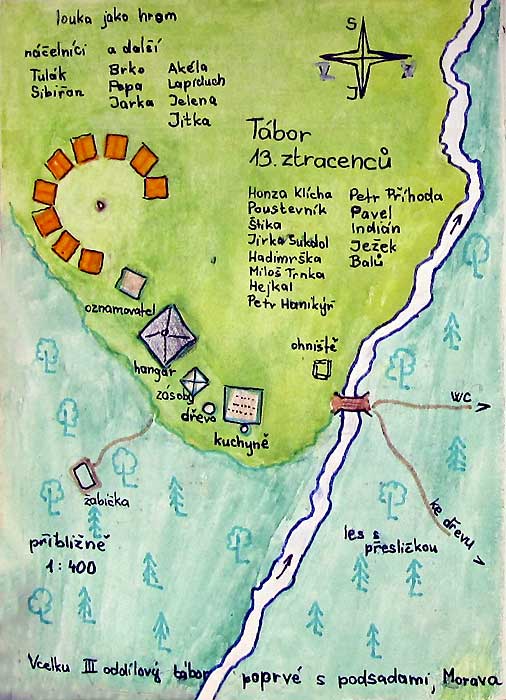 louka jako hrom
náčelníci a další
Tulák
Sibiřan
Brko
Pepa
Jarka
Akéla
Lapiduch
Jelena
Jitka
S
J
Tábor
13. ztracenců
Honza Klícha
Poustevník
Štika
Jirka Sukdol
Hadimrška
Miloš Trnka
Hejkal
Petr Hanikýř
Petr Příhoda
Pavel
Indián
Ježek
Balů
oznamovatel
hangár
zásoby
dřevo
kuchyně
ohniště
WC
ke dřevu
žabička
přibližně
1:400
les s
přesličkou
Vcelku III oddílový tábor poprvé s podsadami Morava